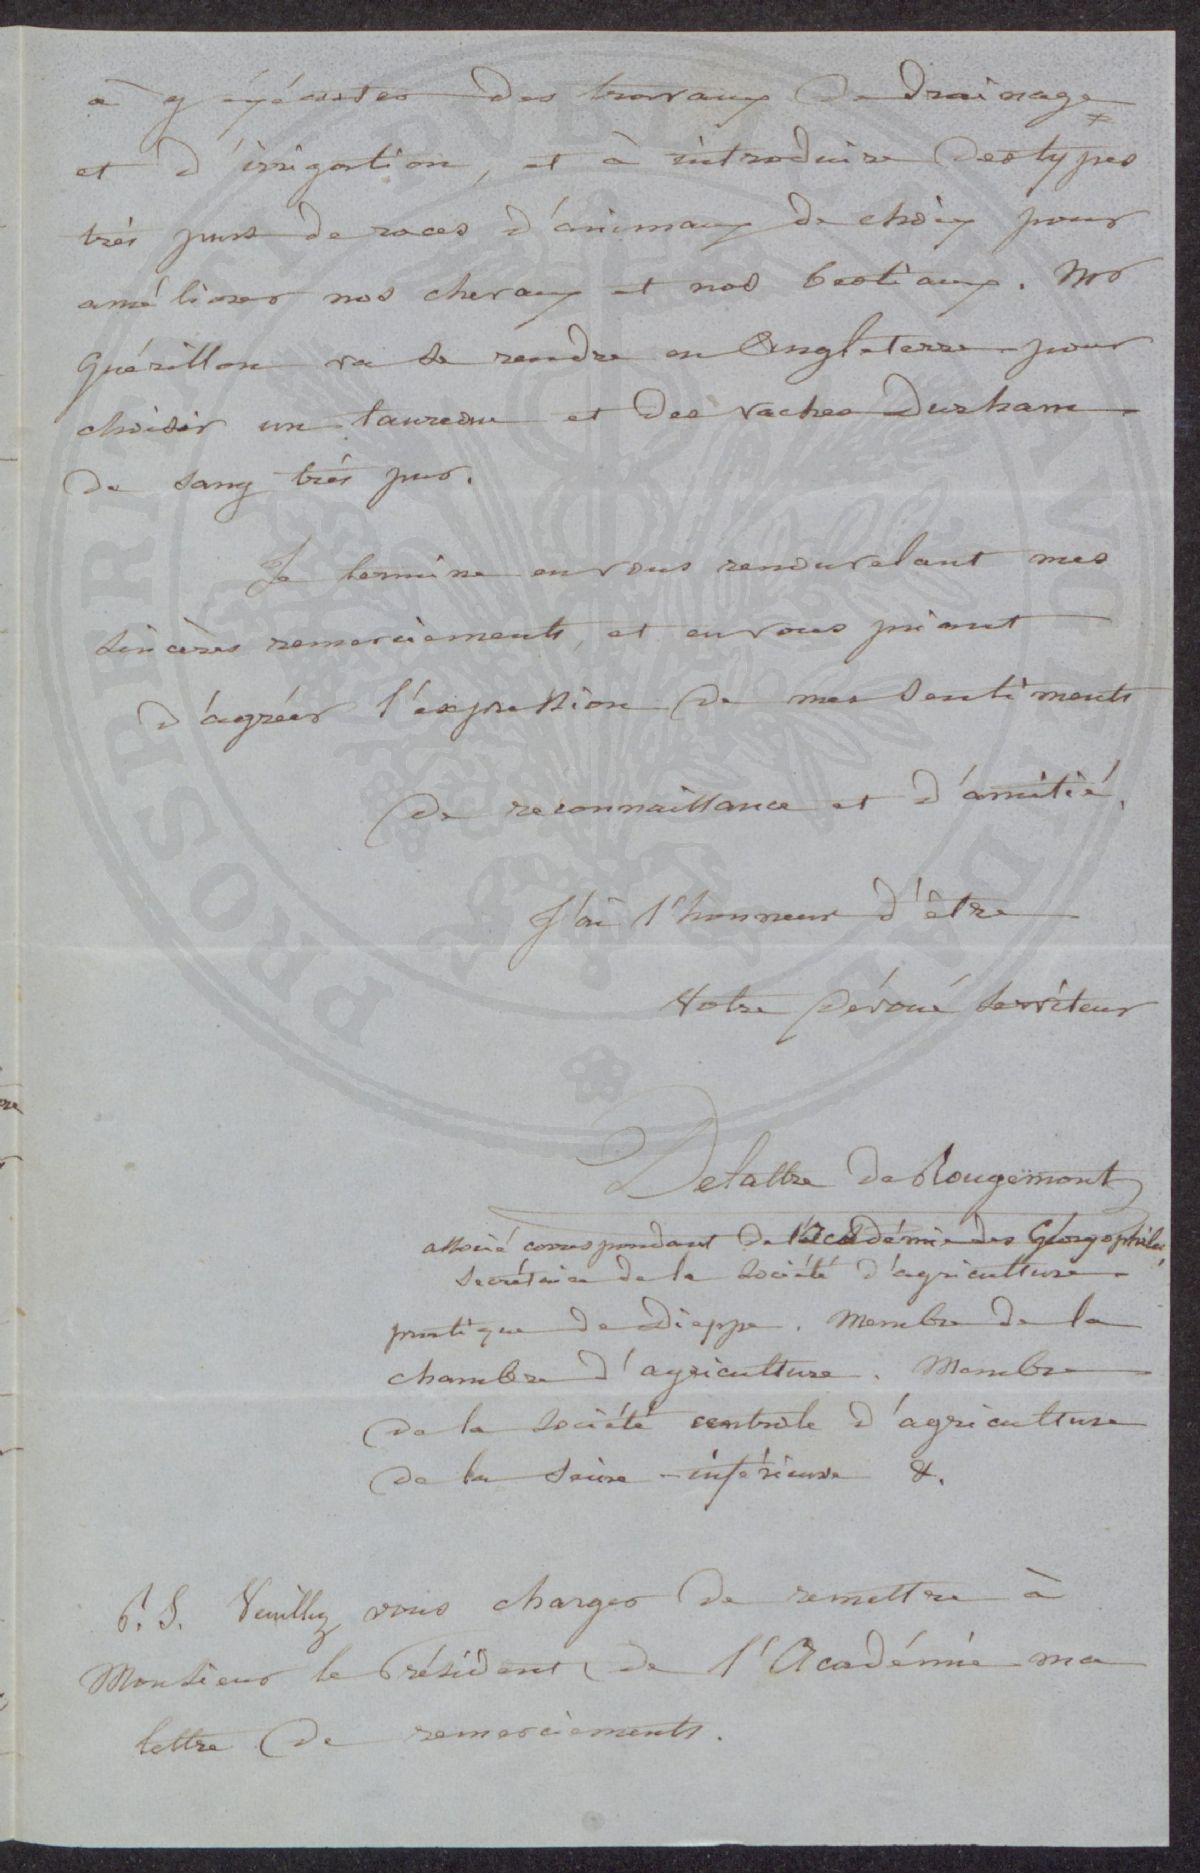 à y éxécuter des travaux de drainage
et d'irrigation, et à introduire des types
très purs de races d'animaux de choix pour
améliorer nos chevaux et nos bestiaux. Mr
Guérillon va se rendre en Angleterre pour
choisir un taureau et des vaches Durham
de sang très pur.
Je termine en vous renouvelant mes
sincères remerciements, et en vous priant
d'agréer l'expression de mes sentiments
de reconnaissance et d'amitié,
J'ai l'honneur d'être
Votre dévoué serviteur
Delattre de Rougemont
associé correspondant de l'académie des Géorgophiles
secrétaire de la société d'agriculture
pratique de Dieppe. Membre de la
chambre d'agriculture. Membre
de la société centrale d'agriculture
de la Seine-inférieure &.
P. S. Veuillez vous charger de remettre à
Monsieur le Président de l'Académie ma
lettre de remerciements.
PROSPERITATI PUBLICAE AUGENDAE